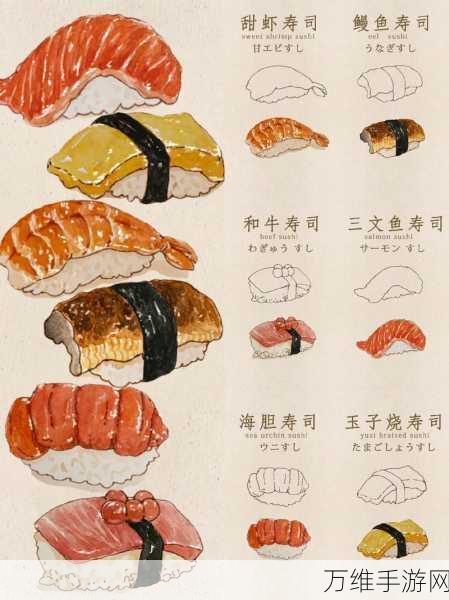 甜虾寿司
sweet shrimp sushi
甘エビすし
鳗鱼寿司
eel sushi
うなぎすし
和牛寿司
beef sushi
わぎゅう すし
三文鱼寿司
salmon sushi
サーモン すし
海胆寿司
sea urchin sushi
ウニすし
玉子烧寿司
yuzi bratsed sushi
たまごしょうすし
万维手游网